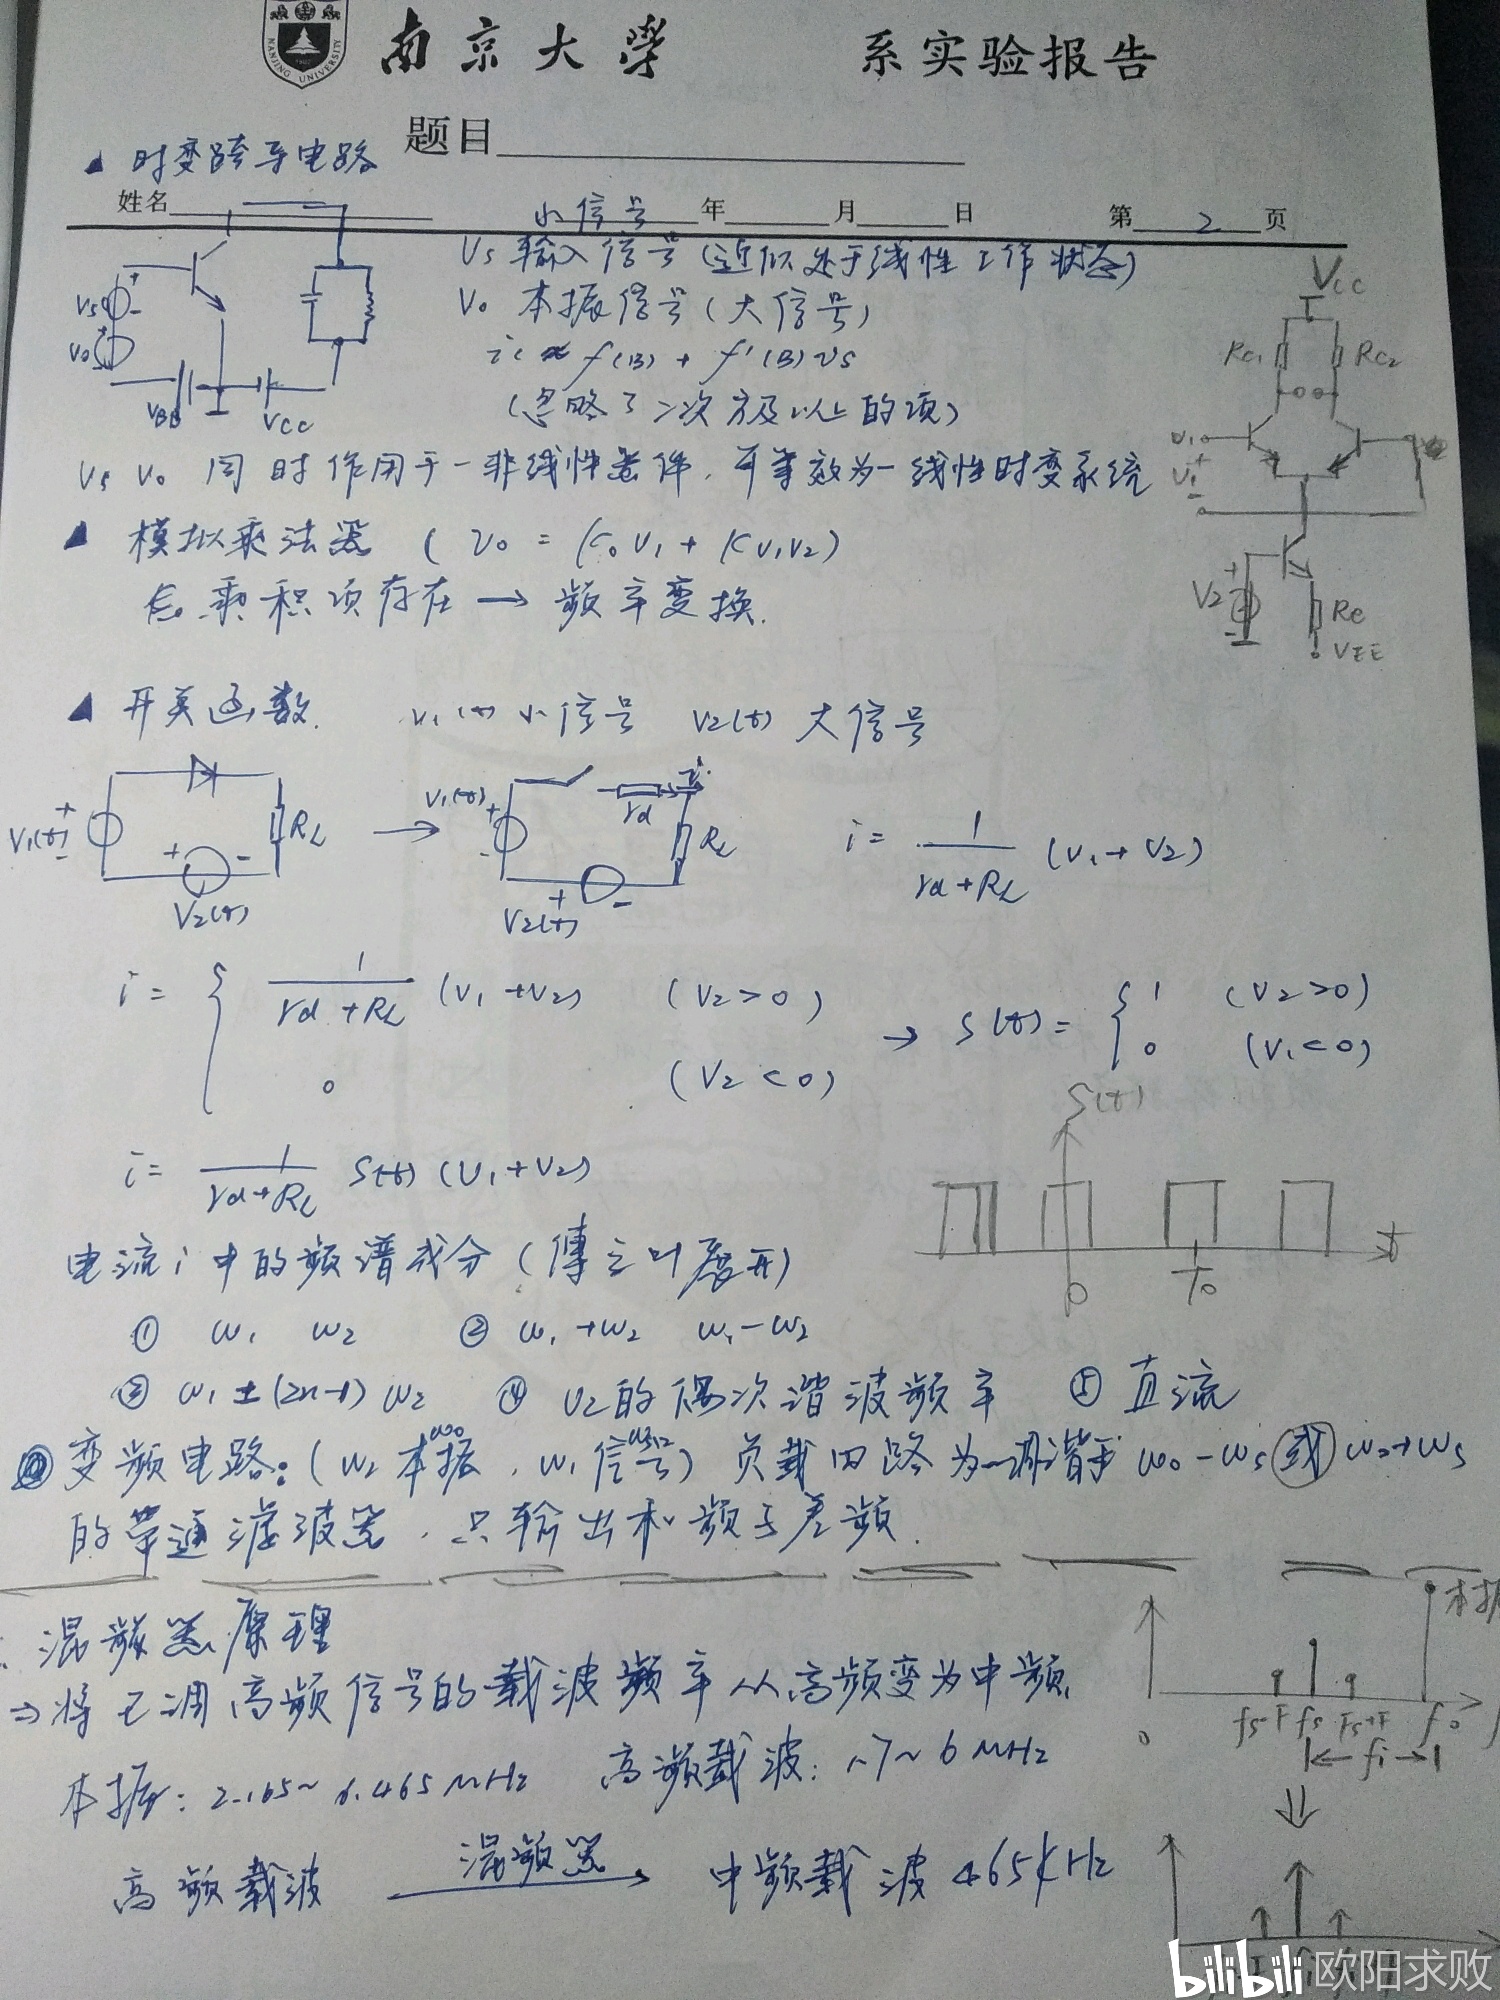 NANJING UNIVERSITY
南京大學 系实验报告
题目
▲ 时变跨导电路
姓名 年 月 日 第 2 页
小信号
Vs 输入信号 (近似处于线性工作状态)
Vo 本振信号 (大信号)
ic ≈ f(B) + f'(B) vs
(忽略了二次方及以上的项)
Vs
+
-
Vo
VBB
VCC
VCC
RC1 RC2
v1
+
V1
-
V2
+
-
Re
VEE
Vs Vo 同时作用于一非线性器件, 可等效为一线性时变系统
▲ 模拟乘法器 ( vo = K0 v1 + K v1v2)
乘积项存在 → 频率变换.
▲ 开关函数. v1(t) 小信号 v2(t) 大信号
V1(t)
+
-
RL
+ -
V2(t)
→
V1(t)
+
-
rd
i
RL
+ -
V2(t)
i = 1/(rd+RL) (v1+v2)
i = { 1/(rd+RL) (v1+v2) (v2>0)
0 (v2<0)
→ S(t) = { 1 (v2>0)
0 (v1<0)
i = 1/(rd+RL) S(t) (v1+v2)
S(t)
0 T0 t
电流 i 中的频谱成分 (傅立叶展开)
① ω1 ω2 ② ω1+ω2 ω1-ω2
③ ω1±(2n-1)ω2 ④ v2的偶次谐波频率 ⑤ 直流
变频电路: (ω2 本振 ω0, ω1 信号) 负载回路为一调谐于 ω0-ωs 或 ω0+ωs
的带通滤波器, 只输出和频与差频.
混频器原理
⇒ 将已调高频信号的载波频率从高频变为中频
本振: 2.165~6.465MHz 高频载波: 1.7~6MHz
高频载波 混频器 → 中频载波 465KHz
0 fs-F fs fs+F f0
|← fi →|
⇓
fi
bilibili 欧阳求败